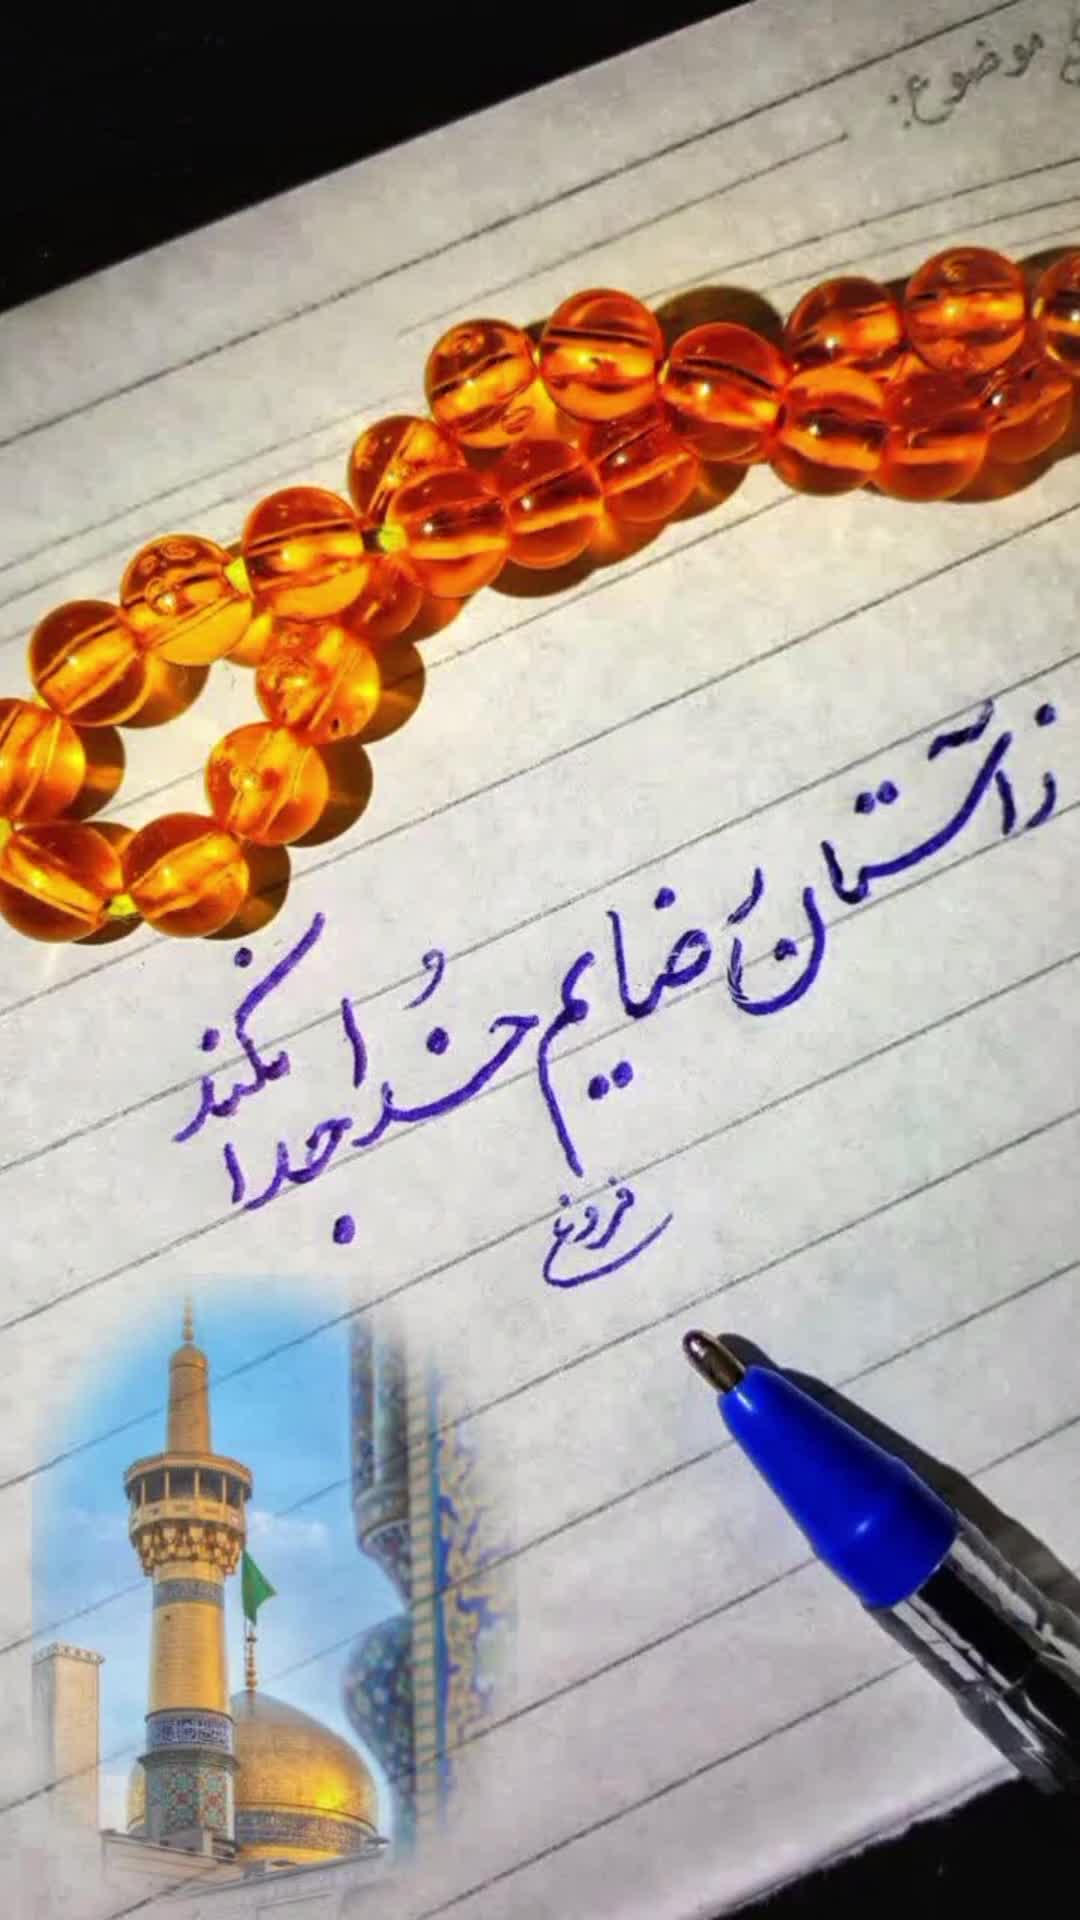 موضوع:
ز آستان رَضایم خُدا جدا نکند
فروغ